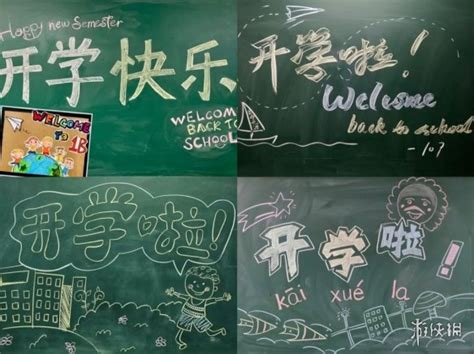 Happy new Semester
开学快乐
WELCOME
BACK TO
SCHOOL!
WELCOME
To 1B
开学啦！
Welcome
back to school
-107
开学啦！
开学啦！
kāi xué la
游侠网